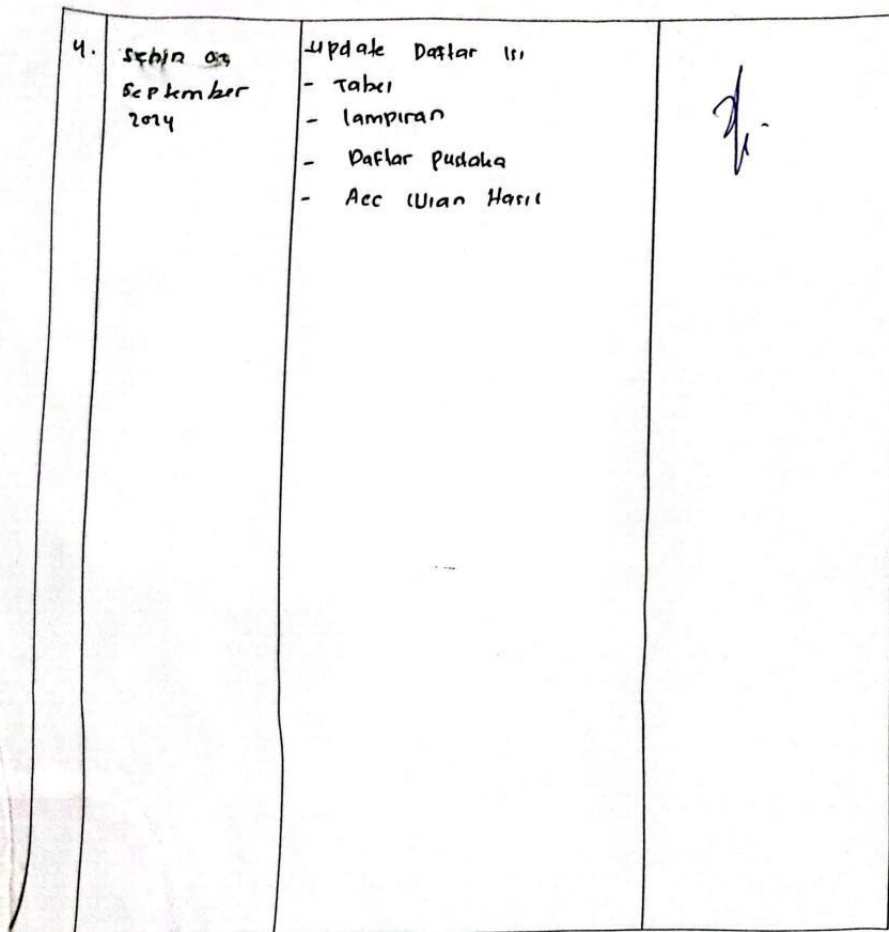 4.
September
2024
Update Daftar Isi
- Tabel
- lampiran
- Daftar pustaka
- Acc Ujian Hasil